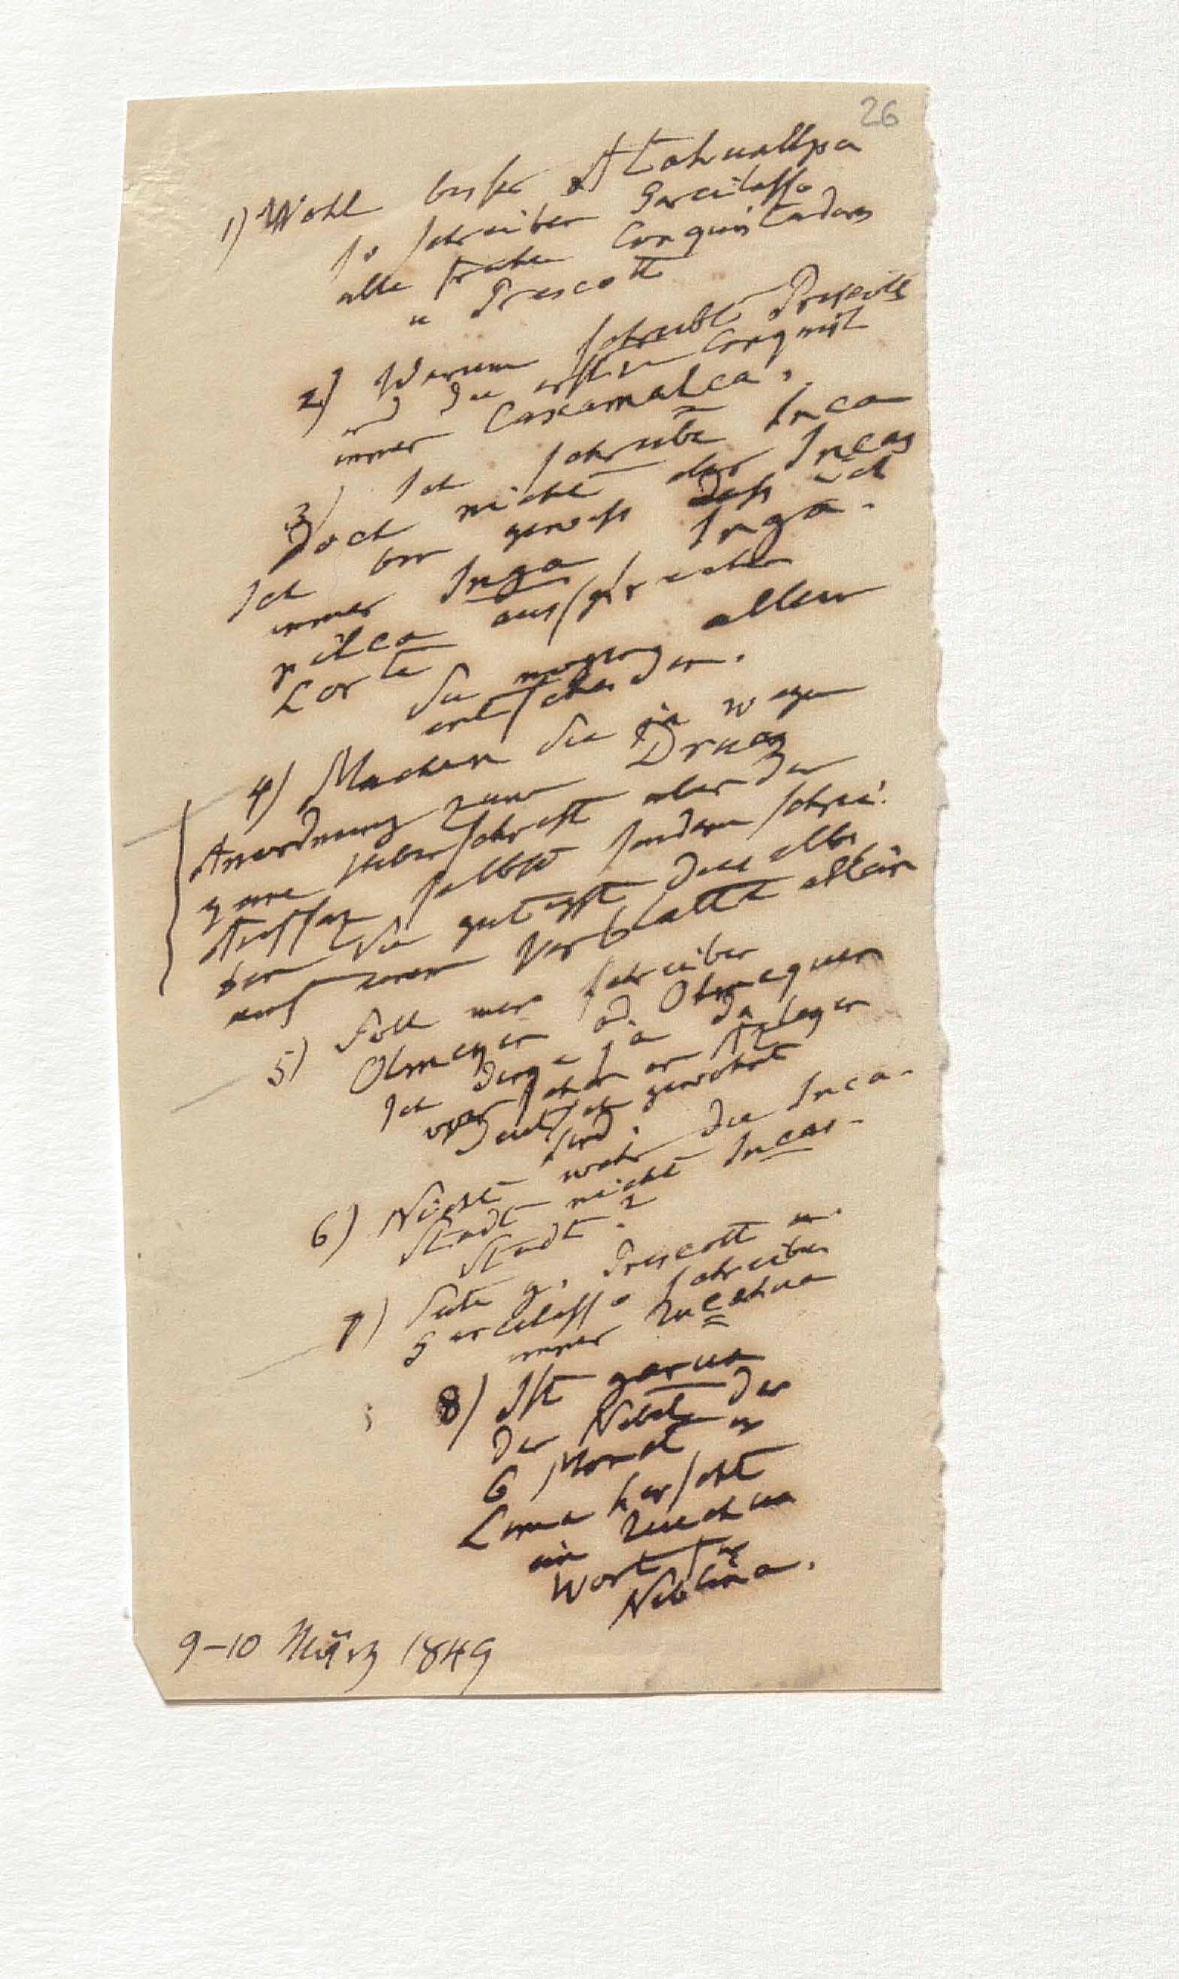 26
1) Wohl besser Atahuallpa
so schreiben Garcilasso
alle frühe Conquistadors
u Prescott
2) Warum schreibt Prescott
und die ersten Conquist
immer Caxamalca.
3) Ich schreibe Inca
doch nicht der Incas
Ich bin gewiss dass ich
immer Inga Inga.
pilca ausgesprochen
Sie mögen allein
entscheiden.
4) Machen Sie ja wegen
Anordnung zum Druck
keine Ueberschrift über den
Aufsaz selbst sondern schrei.
ben Sie gütigst dieselbe
auf einem Vorblatte allein
5) Soll man schreiben
Olmeken od. Olmequen
Ich
Deutsch gewöhnt
sind.
6) Nicht wahr die Inca-
Stadt nicht Incas-
Stadt?
7) Seite 9. Prescott u.
Garcilasso schreiben
immer Quechua
8) Ist garua
der Nebel der
6 Monat in
Lima herscht
ein Quechua
Wort für
Neblina.
9-10 März 1849